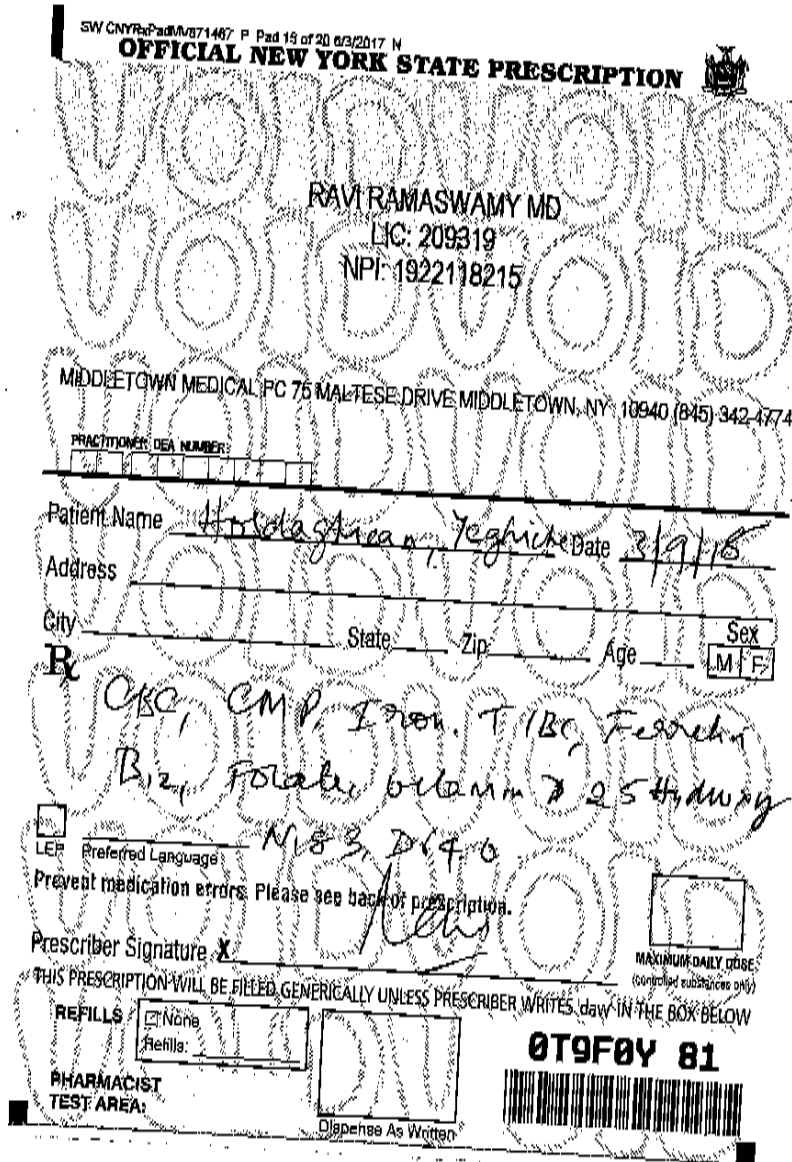 SW CNYRxPadMV871467 P Pad 18 of 20 6/3/2017 N
OFFICIAL NEW YORK STATE PRESCRIPTION
VOID VOID
RAVI RAMASWAMY MD
LIC: 209319
NPI: 1922118215
MIDDLETOWN MEDICAL PC 75 MALTESE DRIVE MIDDLETOWN, NY 10940 (845) 342-4774
PRACTITIONER DEA NUMBER
Patient Name Date
Address
City State Zip Age Sex
M F
Rx
CBC, CMP, Iron, TIBC, Ferretin
B12, Folate, vitamin D 25 Hydroxy
LEP Preferred Language
Prevent medication errors. Please see back of prescription.
Prescriber Signature X
MAXIMUM DAILY DOSE
(controlled substances only)
THIS PRESCRIPTION WILL BE FILLED GENERICALLY UNLESS PRESCRIBER WRITES daw IN THE BOX BELOW
REFILLS None
Refills:
0T9F0Y 81
PHARMACIST
TEST AREA:
Dispense As Written